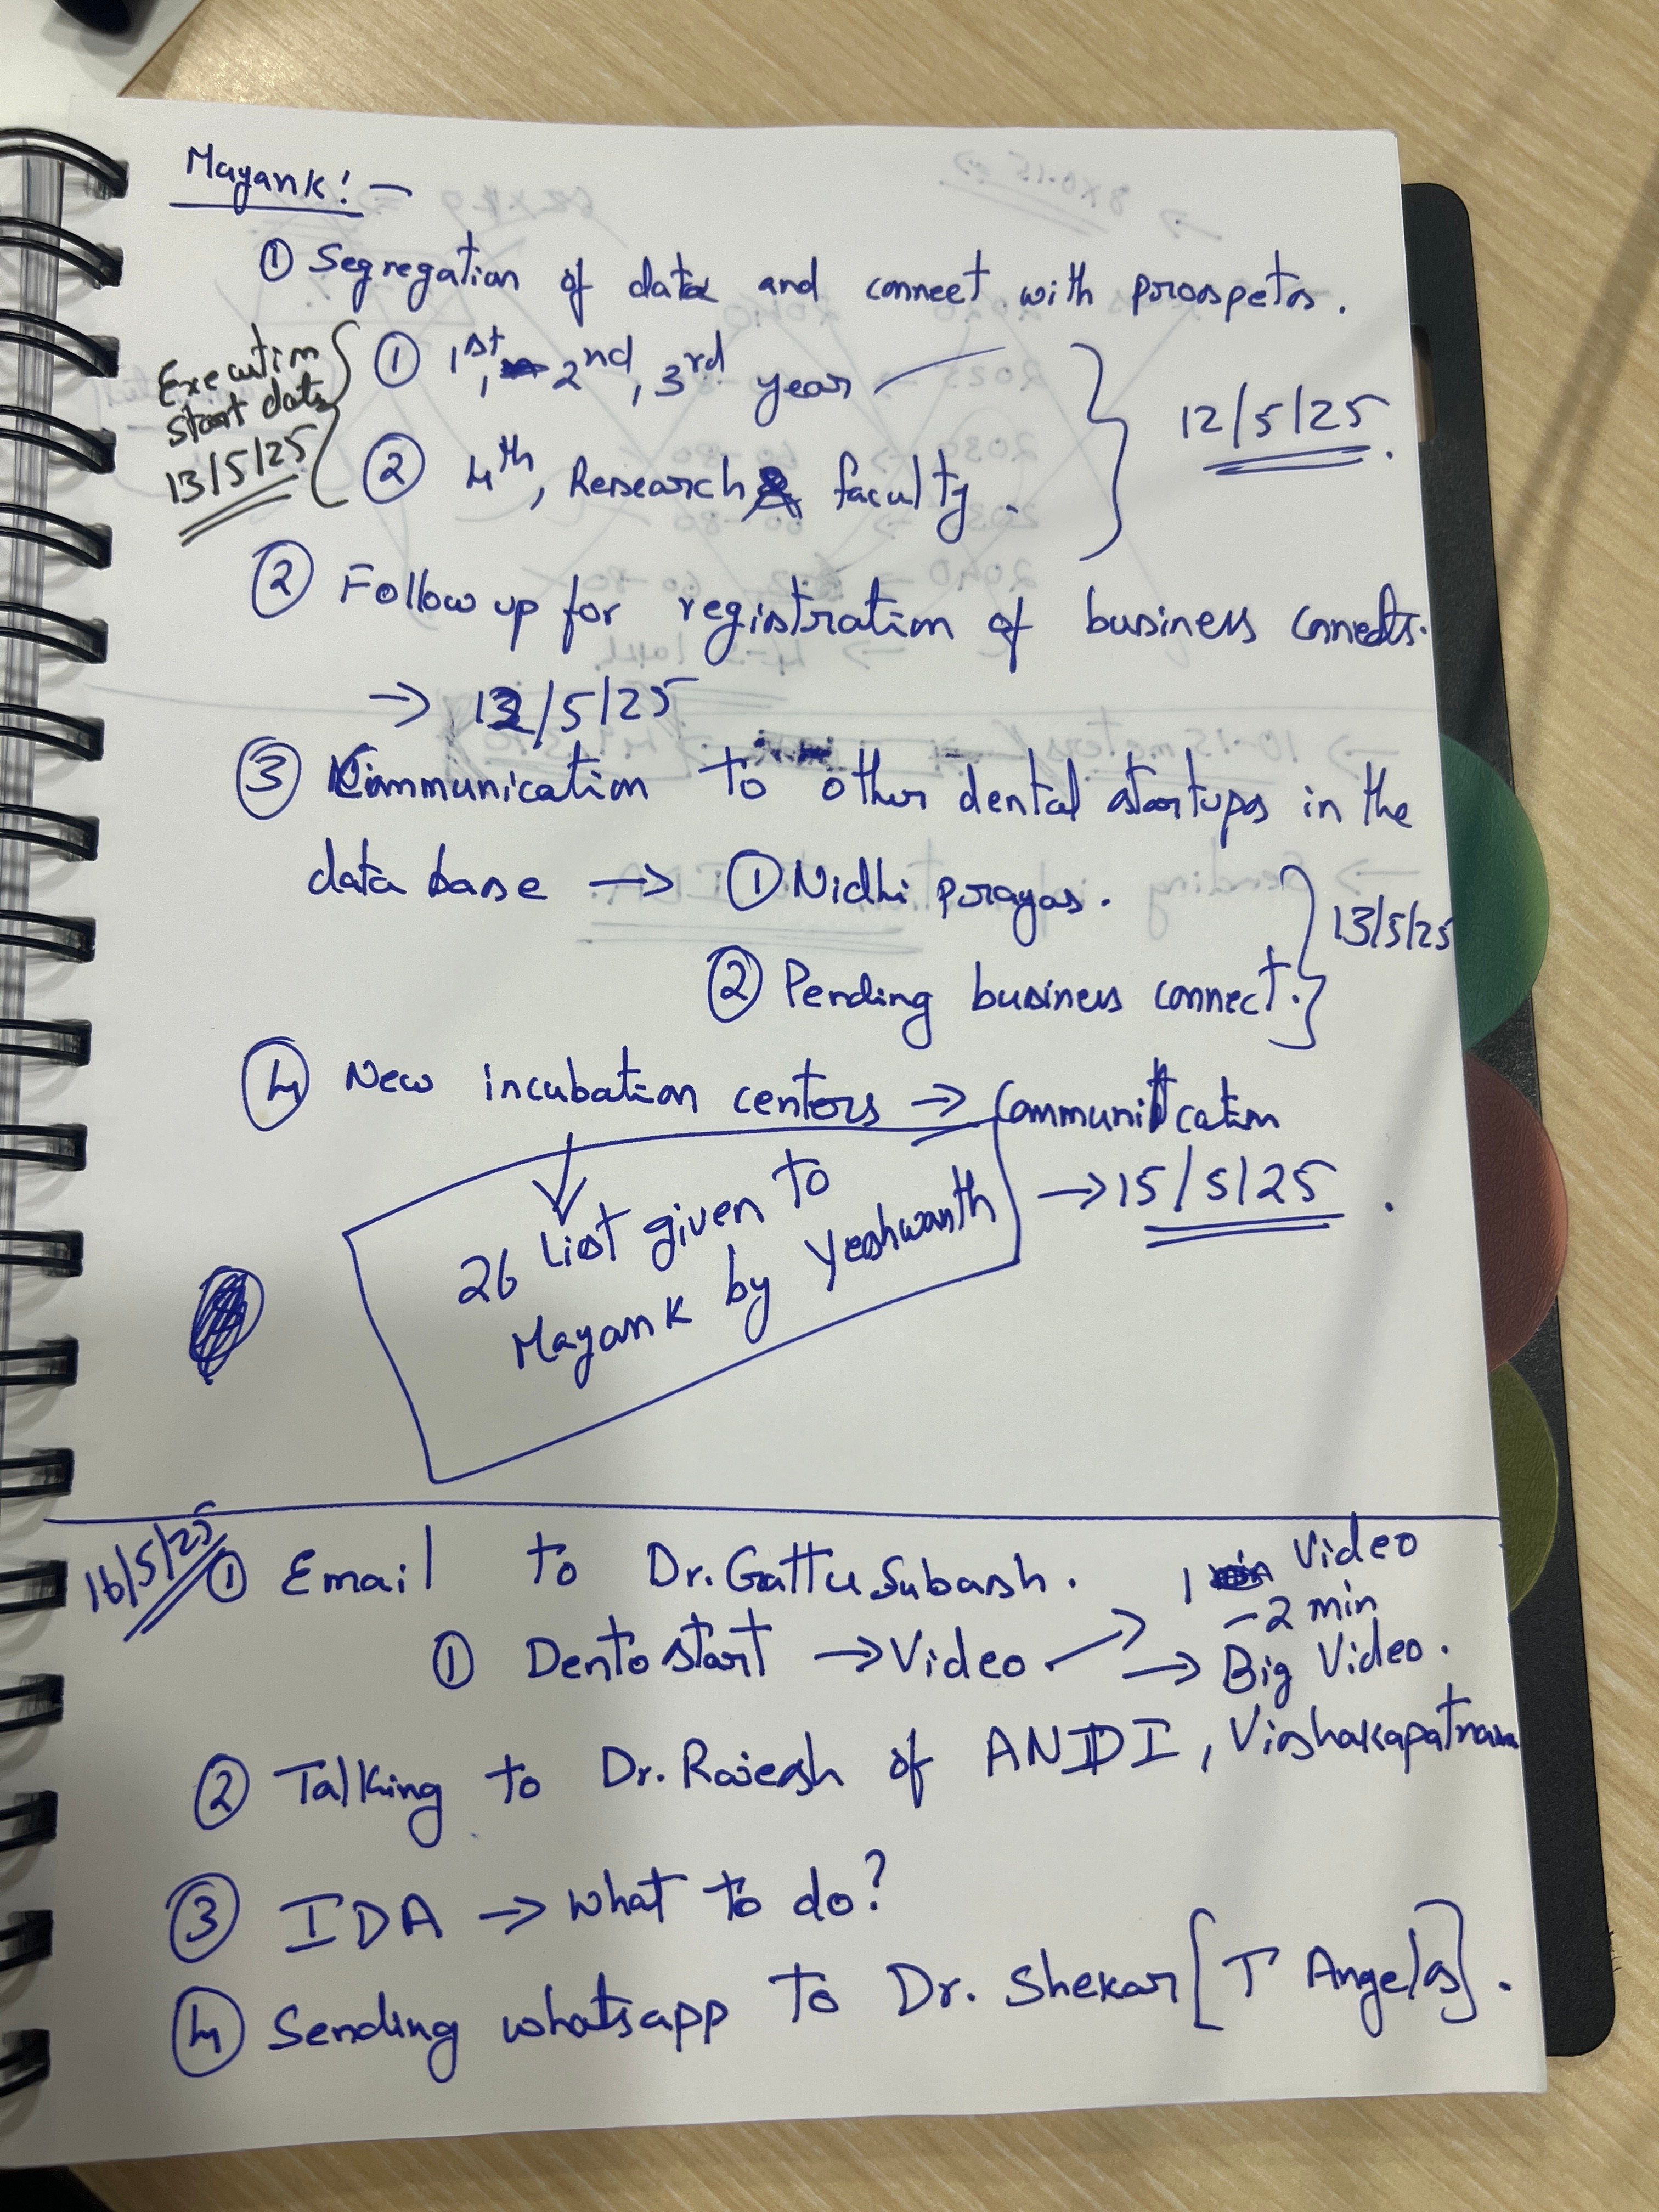 Mayank! -
① Segregation of data and connect with prospets.
Execution
start date
13/5/25
① 1st, 2nd, 3rd year
② 4th, Research & faculty.
12/5/25.
② Follow up for registration of business connects.
→ 12/5/25
③ Communication to other dental startups in the
data base → ① Nidhi prayas.
② Pending business connect.
13/5/25
④ New incubation centers → Communication
→ 15/5/25.
26 List given to
Mayank by Yeshwanth
16/5/25
① Email to Dr. Gattu Subash.
① Dento start → Video → 1 Video
- 2 min
→ Big Video.
② Talking to Dr. Rajesh of ANDI, Vishakapatnam
③ IDA → what to do?
④ Sending whatsapp to Dr. Shekar [T Angels].